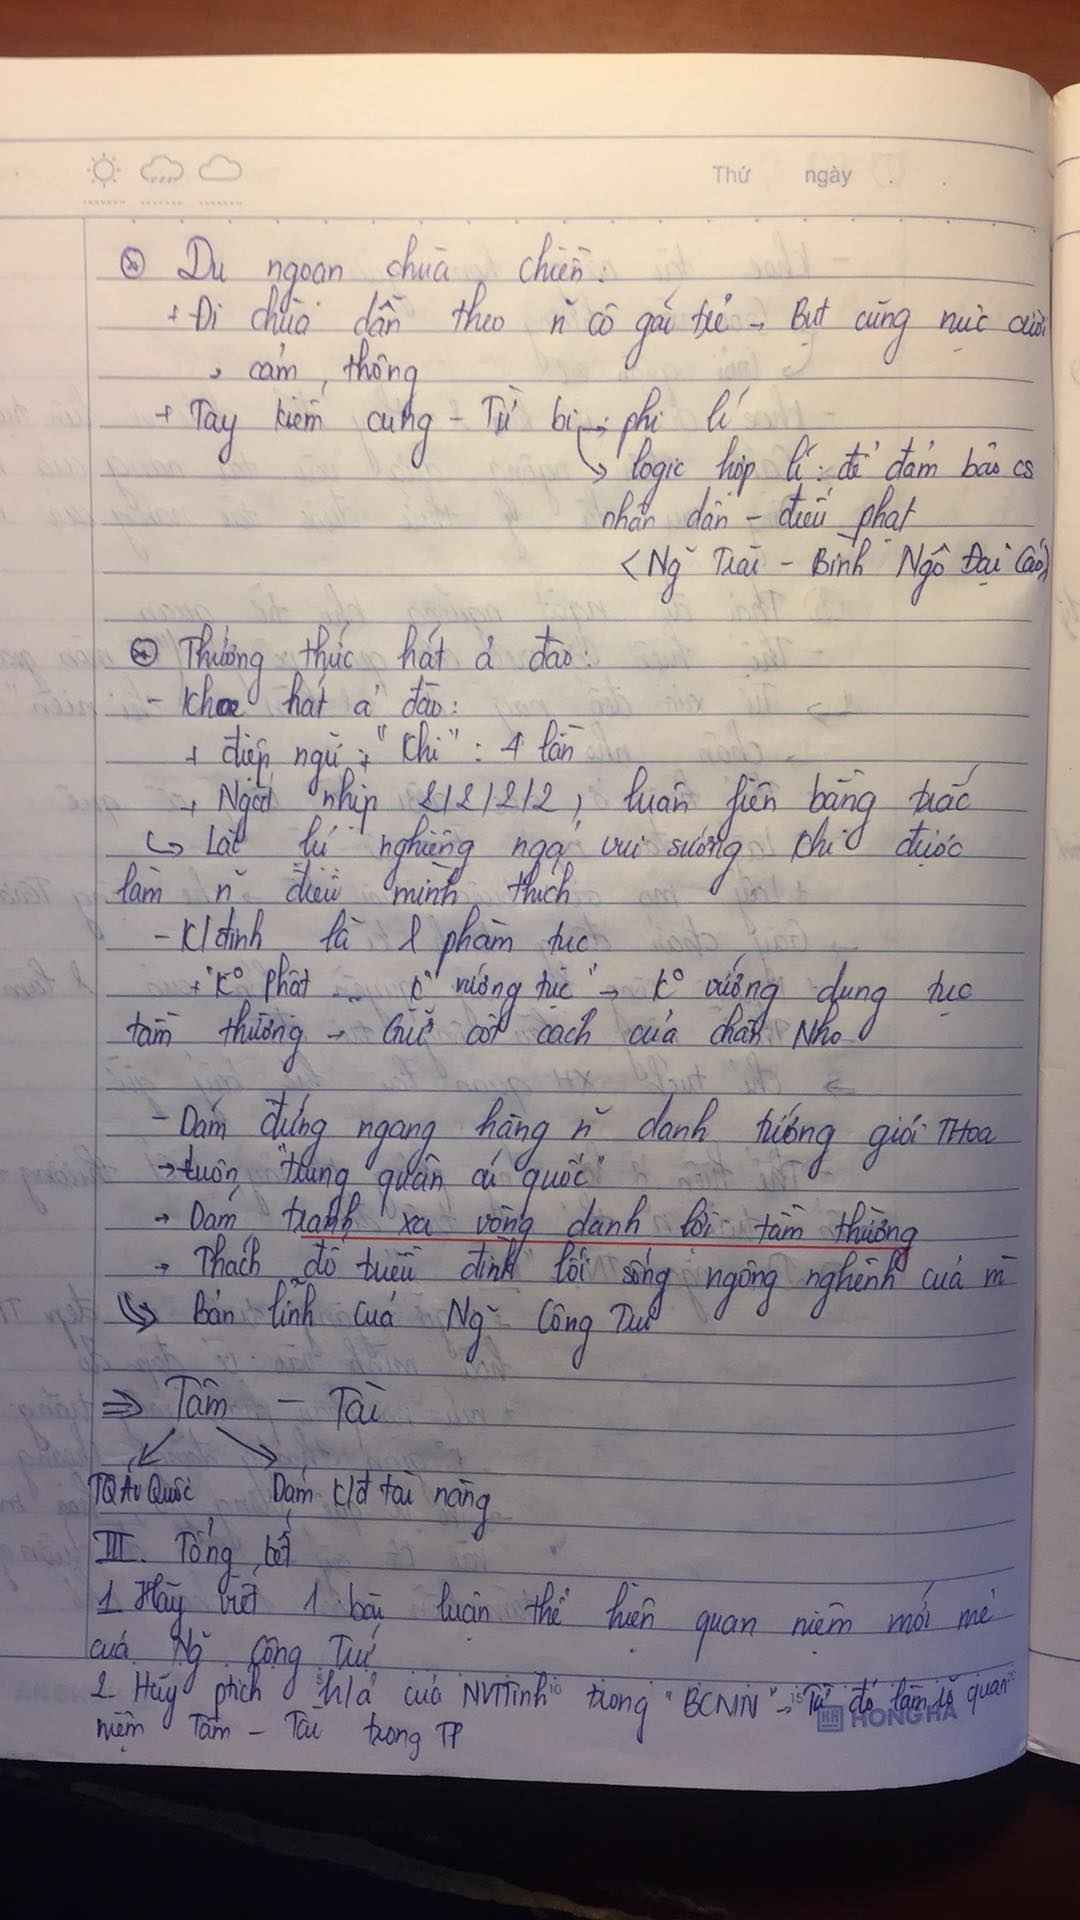 Thứ ngày
Du ngoạn chùa chiền:
+ Đi chùa dẫn theo n~ cô gái trẻ → Bụt cũng nực cười
→ cảm thông
+ Tay kiếm cung - Từ bi → phi lí
↳ logic hợp lí: để đảm bảo cs
nhân dân - điếu phạt
<Ng~ Trãi - Bình Ngô Đại Cáo>
Thưởng thức hát ả đào:
- Khoe hát ả đào:
+ điệp ngữ: "khi": 4 lần
+ Ngắt nhịp 2/2/2/2, luân fiên bằng trắc
↳ Lắc lư nghiêng ngả vui sướng khi được
làm n~ điều mình thích
- K/định là 1 phàm tục
+ "K° phật ... k° vướng tục" → k° vướng dung tục
tầm thường → Giữ cốt cách của nhà Nho
- Dám đứng ngang hàng n~ danh tướng giới THoa
→ luôn "trung quân ái quốc"
→ Dám tránh xa vòng danh lợi tầm thường
→ Thách đố triều đình lối sống ngông nghênh của m
↳ Bản lĩnh của Ng~ Công Trứ
⇒ Tâm - Tài
TQ Ái Quốc Dám k/đ tài năng
III. Tổng kết
1. Hãy viết 1 bài luận thể hiện quan niệm mới mẻ
của Ng~ Công Trứ
2. Hãy ptích h/ả của NVTTình trong "BCNN" → Từ đó làm rõ quan
niệm Tâm - Tài trong TP
HONG HA